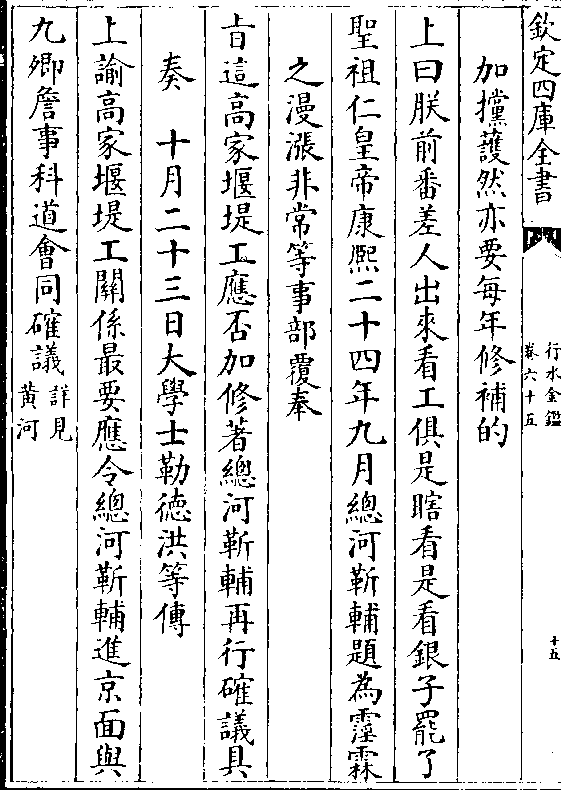 欽定四庫全書
行水金鑑
卷六十五
十五
加攩䕶然亦要每年修補的
上曰朕前番差人出來看工俱是瞎看是看銀子罷了
聖祖仁皇帝康熙二十四年九月總河靳輔題為霪霖
之漫漲非常等事部覆奉
㫖這高家堰堤工應否加修著總河靳輔再行確議具
奏 十月二十三日大學士勒德洪等傳
上諭高家堰堤工關係最要應令總河靳輔進京面與
九卿詹事科道會同確議詳見
黄河